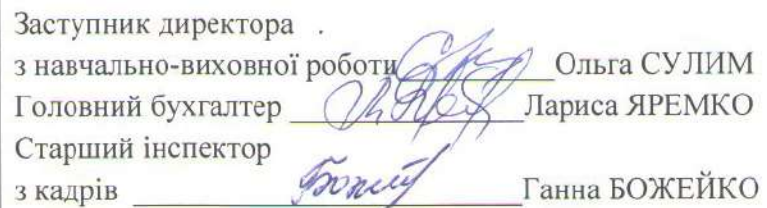 Заступник директора
з навчально-виховної роботи Ольга СУЛИМ
Головний бухгалтер Лариса ЯРЕМКО
Старший інспектор
з кадрів Ганна БОЖЕЙКО